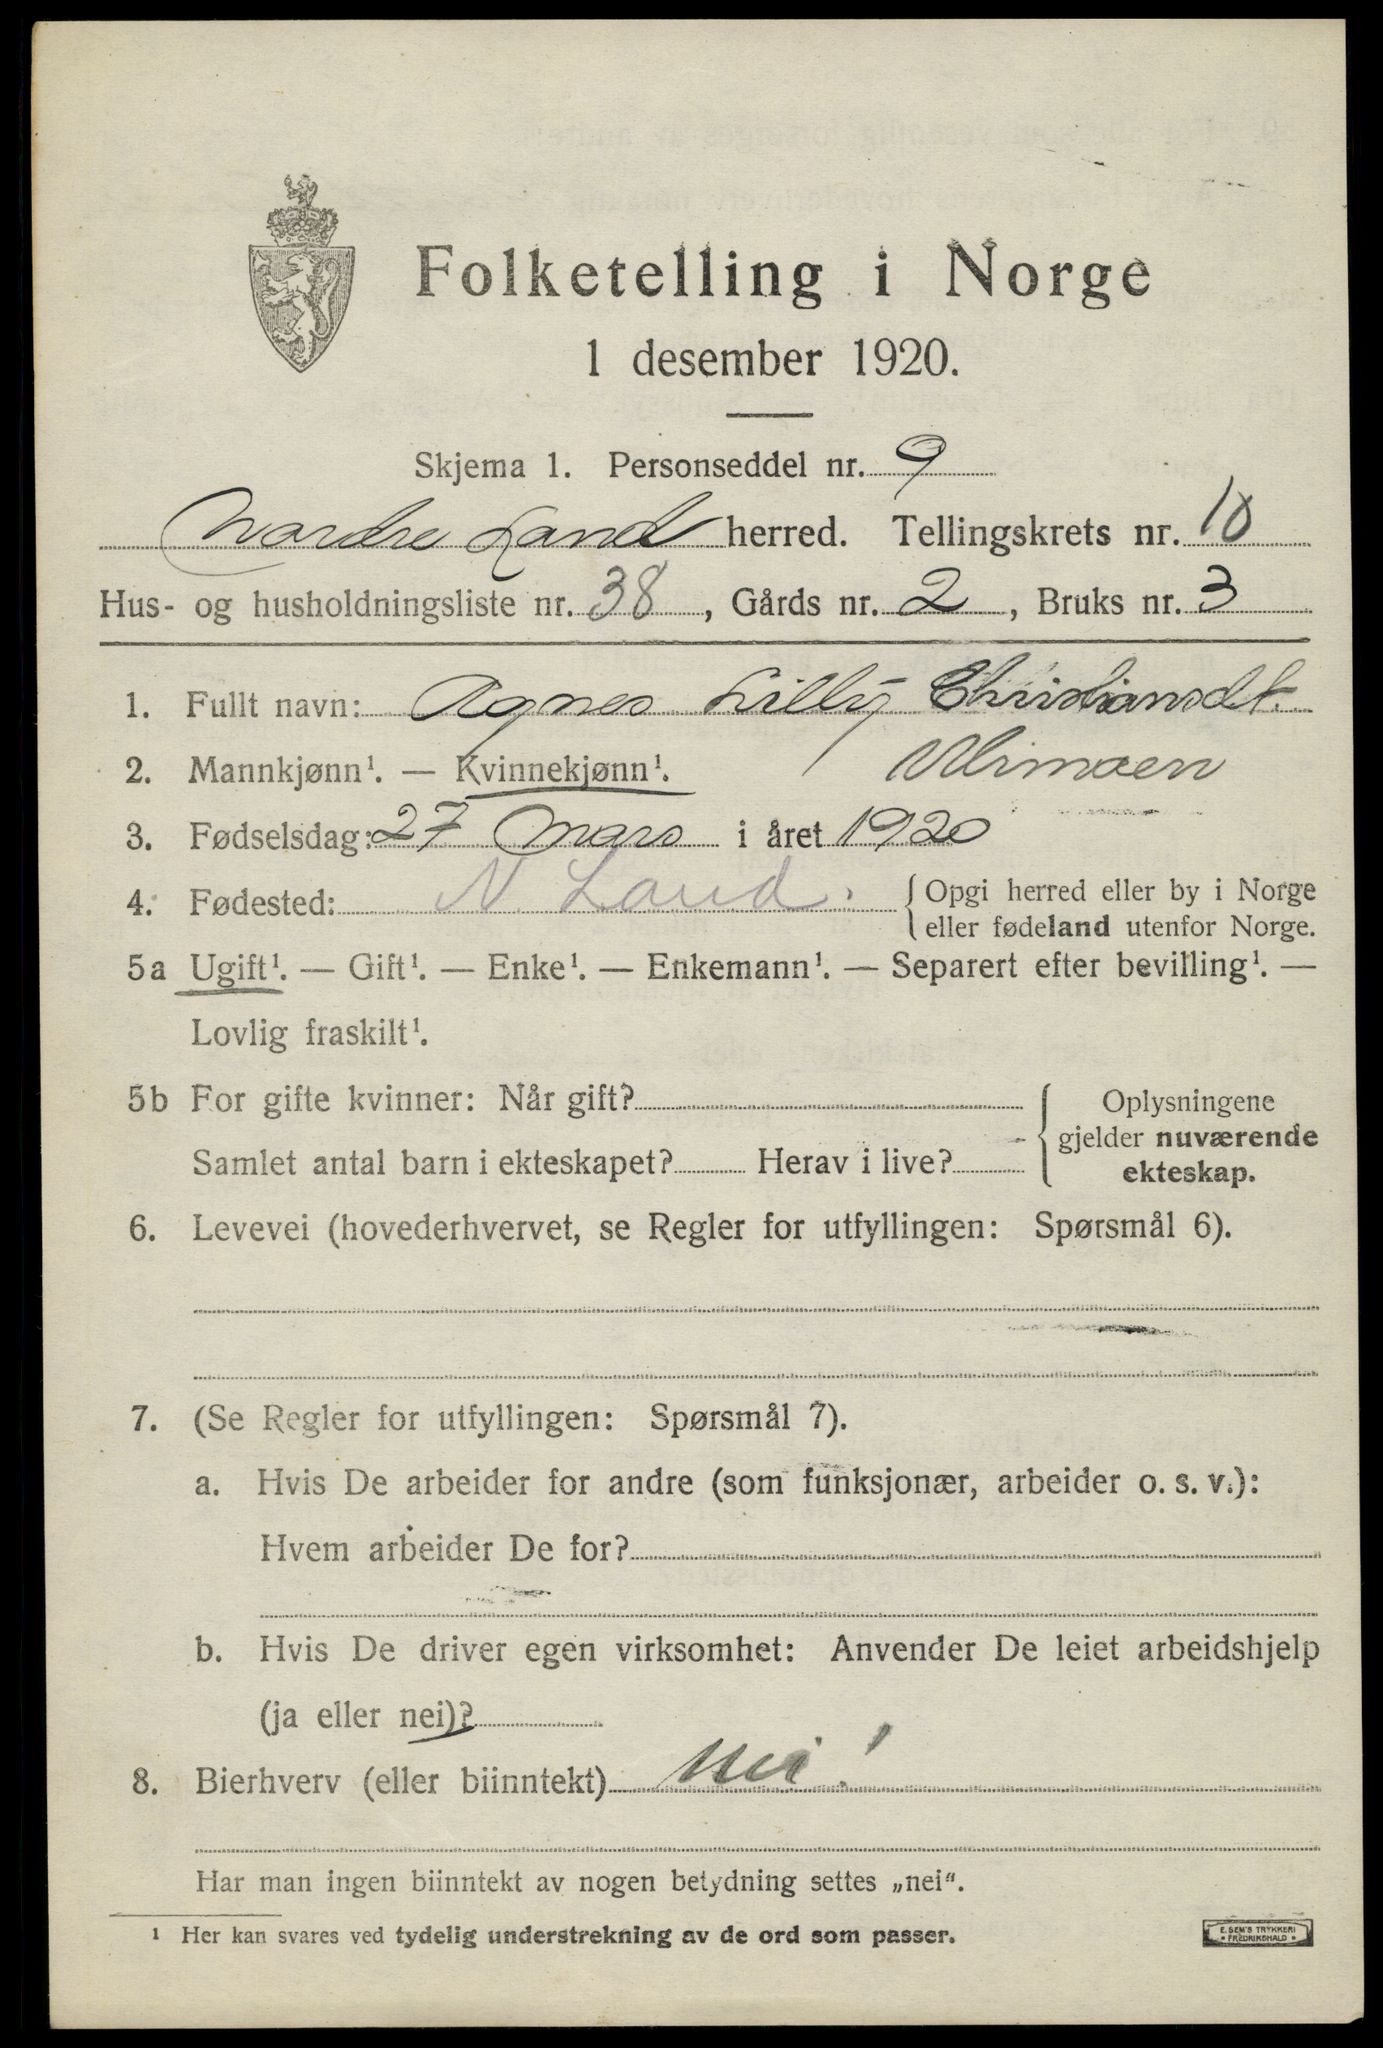 Folketelling i Norge
1 desember 1920.
Skjema 1. Personseddel nr. 9
Nordre Land herred. Tellingskrets nr. 10
Hus- og husholdningsliste nr. 38, Gårds nr. 2, Bruks nr. 3
1. Fullt navn: Agnes Lilly Christiansdt.
2. Mannkjønn¹. — Kvinnekjønn¹.
3. Fødselsdag: 27 Mars i året 1920
4. Fødested: N. Land. { Opgi herred eller by i Norge
eller fødeland utenfor Norge.
5a Ugift¹. — Gift¹. — Enke¹. — Enkemann¹. — Separert efter bevilling¹. —
Lovlig fraskilt¹.
5b For gifte kvinner: Når gift? { Oplysningene
gjelder nuværende
ekteskap.
Samlet antal barn i ekteskapet? Herav i live?
6. Levevei (hovederhvervet, se Regler for utfyllingen: Spørsmål 6).
7. (Se Regler for utfyllingen: Spørsmål 7).
a. Hvis De arbeider for andre (som funksjonær, arbeider o. s. v.):
Hvem arbeider De for?
b. Hvis De driver egen virksomhet: Anvender De leiet arbeidshjelp
(ja eller nei)?
8. Bierhverv (eller biinntekt) Nei!
Har man ingen biinntekt av nogen betydning settes „nei“.
¹ Her kan svares ved tydelig understrekning av de ord som passer.
E. SEM'S TRYKKERI
• FREDRIKSHALD •